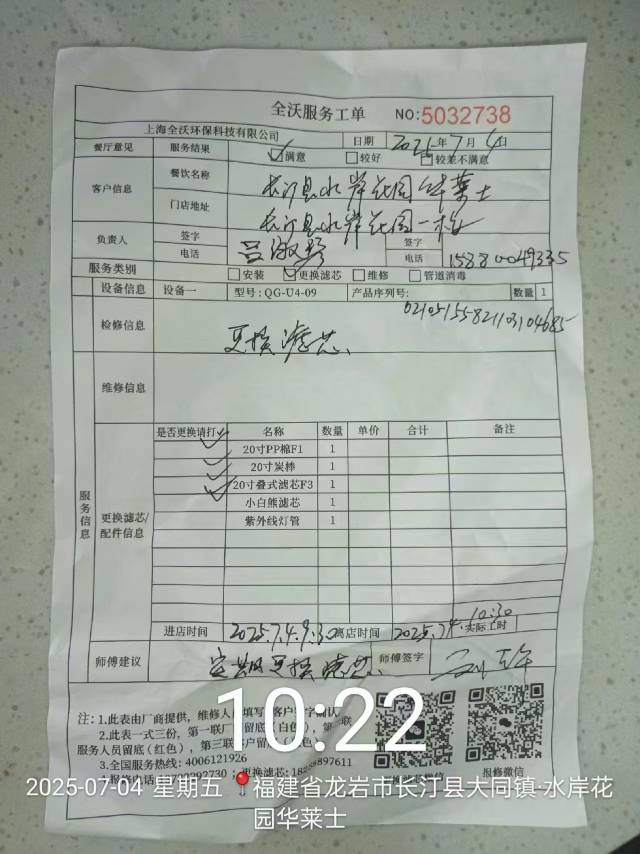 全沃服务工单 NO:5032738
上海全沃环保科技有限公司 日期 2025年7月4日
餐厅意见 服务结果 满意 较好 较差不满意
客户信息 餐饮名称 长汀县水岸花园华莱士
门店地址 长汀县水岸花园一栋
负责人 签字 签字
电话 电话 15880049335
服务类别 安装 更换滤芯 维修 管道消毒
设备信息 设备一 型号:QG-U4-09 产品序列号: 数量 1
检修信息 更换滤芯、
维修信息
服务信息
更换滤芯/配件信息
是否更换请打✓ 名称 数量 单价 合计 备注
20寸PP棉F1 1
20寸炭棒 1
20寸叠式滤芯F3 1
小白熊滤芯 1
紫外线灯管 1
进店时间 2025.7.4.9:30 离店时间 2025.7.4. 10:30 实际工时
师傅建议 定期更换滤芯、 师傅签字
注:1.此表由厂商提供,维修人
2.此表一式三份,第一联
服务人员留底(红色),第三联
3.全国服务热线:4006121926
更换滤芯:
报修微信
10:22
2025-07-04 星期五 福建省龙岩市长汀县大同镇·水岸花
园华莱士